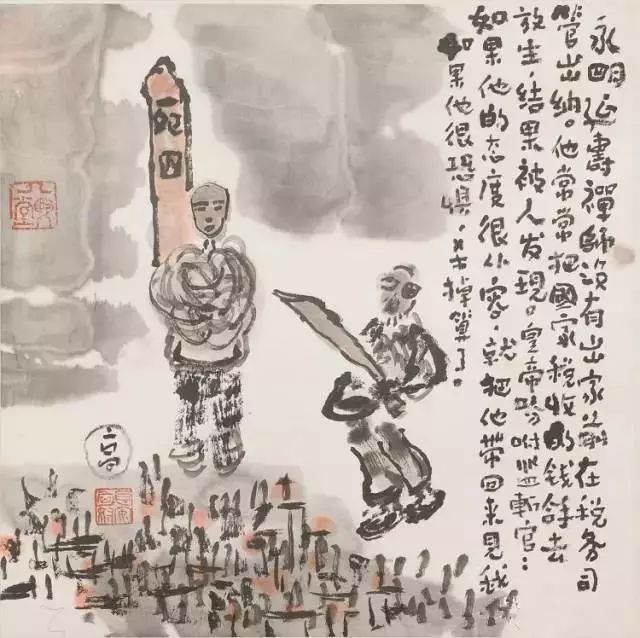 永明延壽禪師没有出家前在税务司
管出纳。他常常把國家税收的钱拿去
放生,结果被人发现。皇帝吩咐监斬官:
如果他的态度很从容,就把他帶回来见我
如果他很恐惧,杀掉算了。
死囚